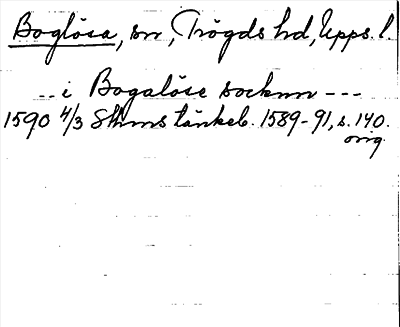 Boglösa, sn, Trögds hd, Upps. l.
... i Bogalöse socknn ---
1590 4/3 Sthms tänkeb. 1589-91, s. 140.
orig.